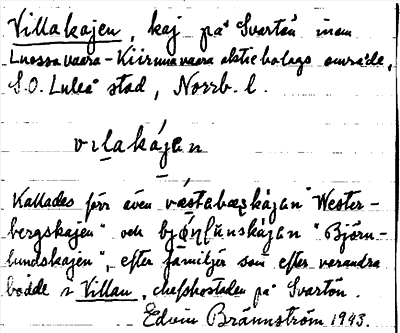 Villakajen, kaj på Svartön inom
Luossavaara-Kiirunavaara aktiebolags område,
S.O. Luleå stad, Norrb. l.
vɪlakájən
Kallades förr även västabærskájən "Wester-
bergskajen" och bjǿɳlúnskájən "Björn-
lundskajen", efter familjer som efter varandra
bodde i Villan, chefsbostaden på Svartön.
Edvin Brännström 1943.